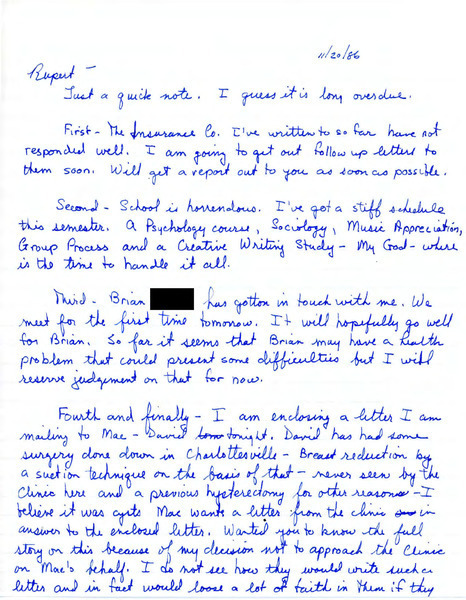 11/20/86
Rupert -
Just a quick note. I guess it is long overdue.
First - The Insurance Co. I've written to so far have not
responded well. I am going to get out follow up letters to
them soon. Will get a report out to you as soon as possible.
Second - School is horrendous. I've got a stiff schedule
this semester. A Psychology course, Sociology, Music Appreciation,
Group Process and a Creative Writing Study - My God - where
is the time to handle it all.
Third - Brian has gotton in touch with me. We
meet for the first time tomorrow. It will hopefully go well
for Brian. So far it seems that Brian may have a health
problem that could present some difficulties but I will
reserve judgement on that for now.
Fourth and finally - I am enclosing a letter I am
mailing to Mac - David tonight. David has had some
surgery done down in Charlottesville - Breast reduction by
a suction technique on the basis of that - never seen by the
Clinic here and a previous hysterectomy for other reasons - I
believe it was cysts Mac wants a letter from the clinic in
answer to the enclosed letter. Wanted you to know the full
story on this because of my decision not to approach the Clinic
on Mac's behalf. I do not see how they would write such a
letter and in fact would loose a lot of faith in them if they